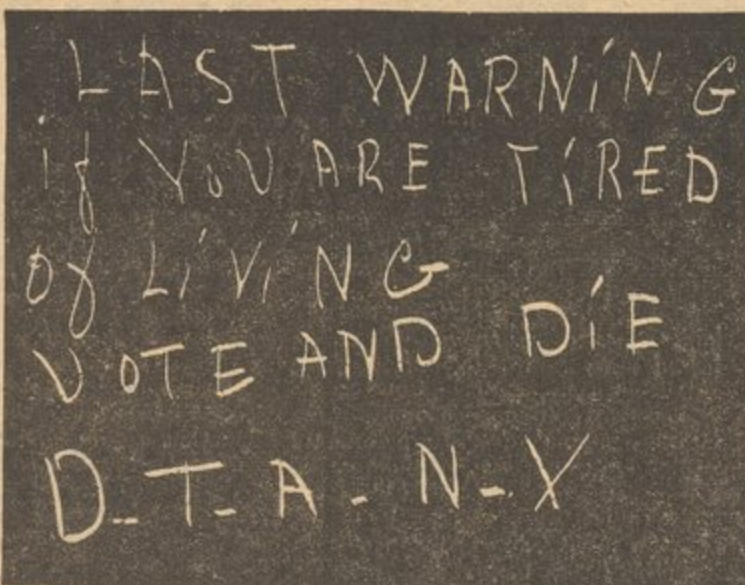 LAST WARNiNG
if YoU ARE TiRED
of LiViNG
VOTE AND DiE
D-T-A-N-X